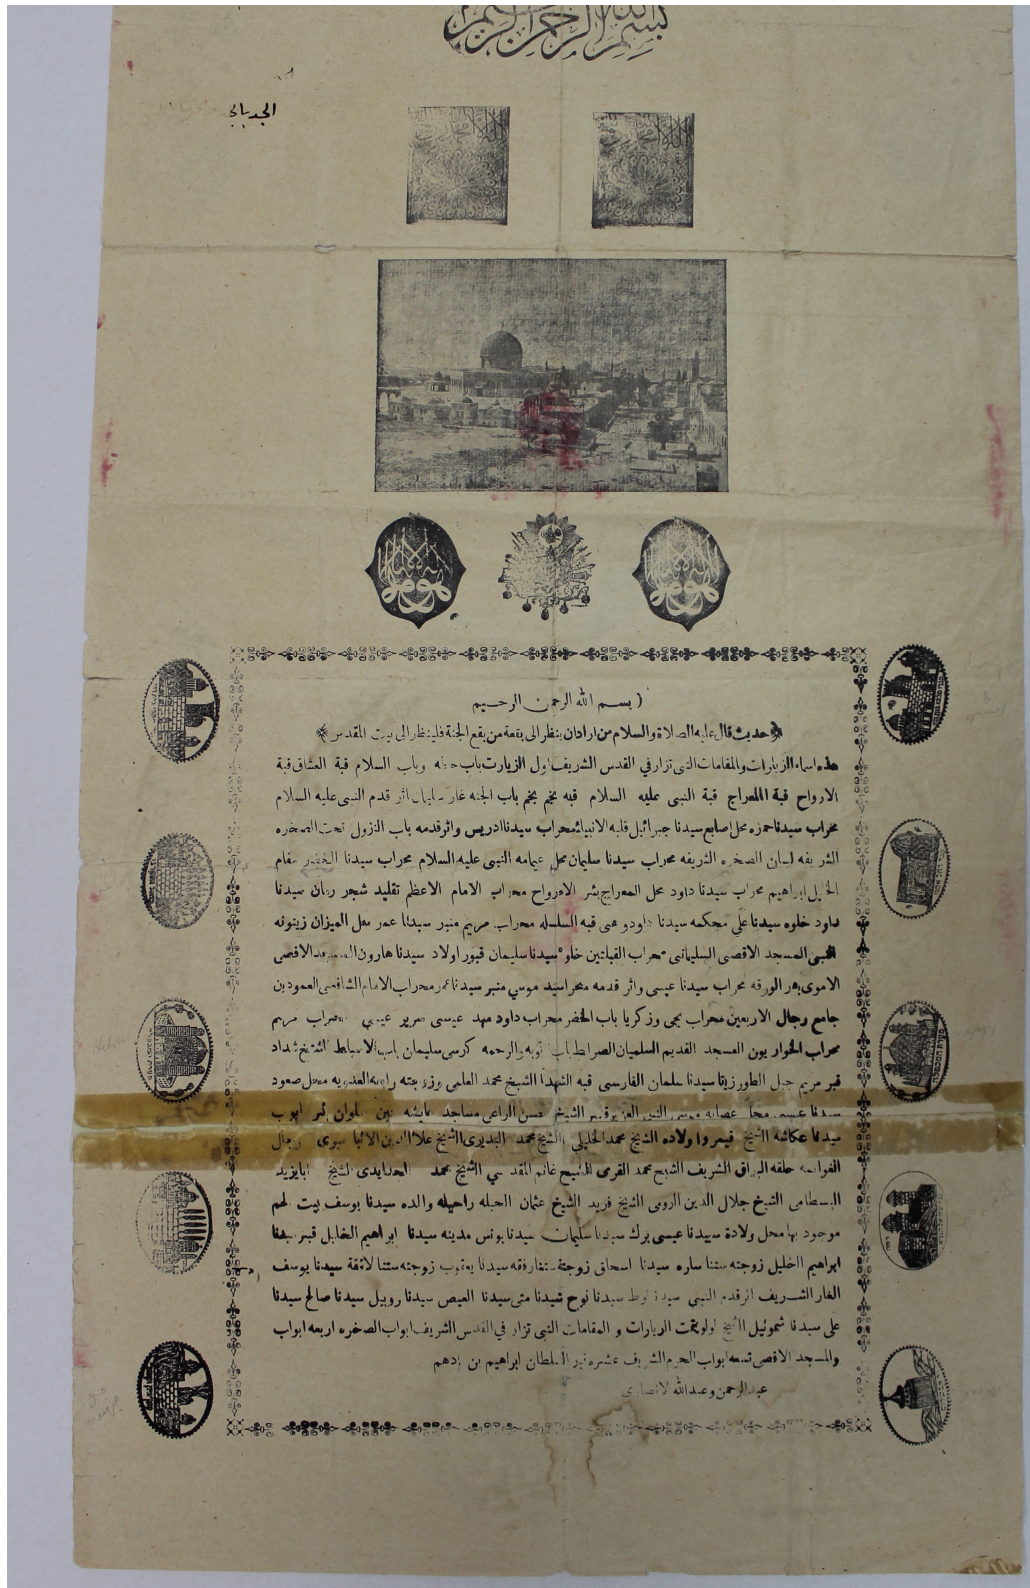 بسم الله الرحمن الرحيم
الله محمد
الله محمد
( بسم الله الرحمن الرحيم
﴿حديث قال عليه الصلاة والسلام من اراد ان ينظر الى بقعة من بقع الجنة فلينظر الى بيت المقدس﴾
هذه اسماء الزيارات والمقامات التي تزار في القدس الشريف اول الزيارت باب حطه وباب السلام قبة العشاق قبة
الارواح قبة المعراج قبة النبي عليه السلام قبه نجم بخم باب الجنه غار سليمان اثر قدم النبي عليه السلام
محراب سيدنا حمزه محل اصابع سيدنا جبرائيل قلبه الانبياء محراب سيدنا ادريس واثر قدمه باب النزول تحت الصخره
الشريفه لسان الصخره الشريفه محراب سيدنا سليمان محل عمامه النبي عليه السلام محراب سيدنا الخضر مقام
الخليل ابراهيم محراب سيدنا داود محل المعراج بئر الارواح محراب الامام الاعظم تقليد شجر رمان سيدنا
داود خلوه سيدنا علي محكمه سيدنا داود وهى قبه السلسله محراب مريم منبر سيدنا عمر محل الميزان زيتونه
النبى المسجد الاقصى السليمانى محراب القبلتين خلوة سيدنا سليمان قبور اولاد سيدنا هارون المسجد الاقصى
الاموى بئر الورقه محراب سيدنا عيسى واثر قدمه محراسيد موسي منبر سيدنا عمر محراب الامام الشافعى العمودين
جامع رجال الاربعين محراب يحي وزكريا باب الخضر محراب داود مهد عيسى سرير عيسى محراب مريم
محراب الحواريون المسجد القديم السلميان الصراط باب توبه والرحمه كرسى سليمان باب الاسباط الشيخ شداد
قبر مريم جبل الطور زيتا سيدنا سلمان الفارسى قبه الشهدا الشيخ محمد العلمي وزوجته رابعه العدويه محل صعود
سيدنا عيسى محل عصابه موسى النبي العزير قبر الشيخ حسن الراعى مساجد عايشه عين سلوان بئر ايوب
سيدنا عكاشه الشيخ قيمر واولاده الشيخ محمد الخليلي الشيخ محمد البديرى الشيخ علاالدين رجال
حلقه البراق الشريف الشيخ محمد القرمى الشيخ غانم المقدسي الشيخ محمد الشيخ ابايزيد
البسطامى الشيخ جلال الدين الرومى الشيخ فريد الشيخ عثمان الحبله راحيله والده سيدنا يوسف بيت لحم
موجود بها محل ولادة سيدنا عيسى برك سيدنا سليمان سيدنا يونس مدينه سيدنا ابراهيم الخليل قبر سيدنا
ابراهيم الخليل زوجته ستنا ساره سيدنا اسحاق زوجة ستنا رفقه سيدنا يعقوب زوجته ستنا لائقة سيدنا يوسف
الغار الشريف اثر قدم النبي سيدنا لوط سيدنا نوح سيدنا متى سيدنا العيص سيدنا روبيل سيدنا صالح سيدنا
على سيدنا شموئيل الشيخ لولو تمت الزيارات و المقامات التى تزار في القدس الشريف ابواب الصخره اربعه ابواب
والمسجد الاقصى تسعه ابواب الحرم الشريف عشره السلطان ابراهيم بن ادهم
عبد الرحمن وعبد الله لانصارى